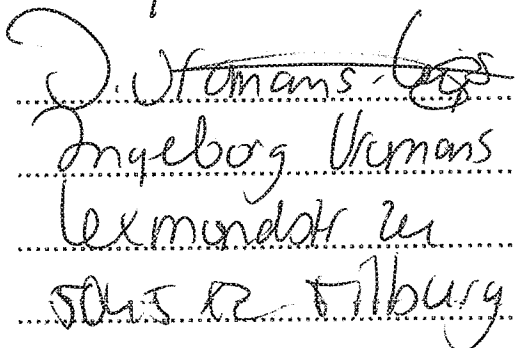 J. Vromans-
Ingeborg Vromans
Lexmondstr 24
5045 KZ Tilburg